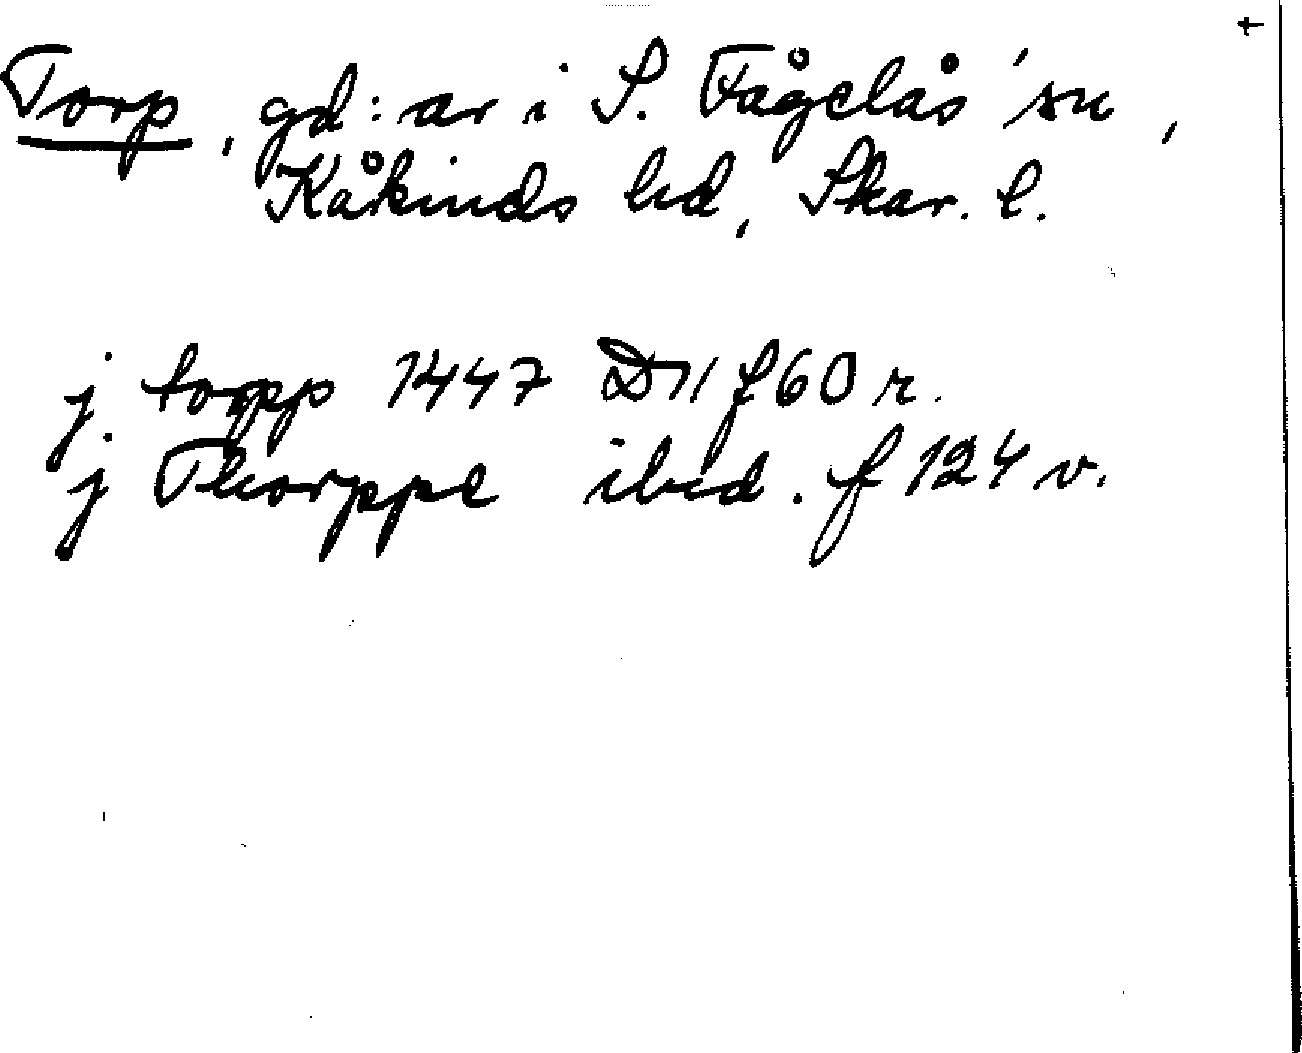 Torp, gd:ar i S. Fågelås sn,
Kåkinds hd, Skar. l.
j topp 1447 D11 f60 r.
j Thorppe ibid. f 124 v.